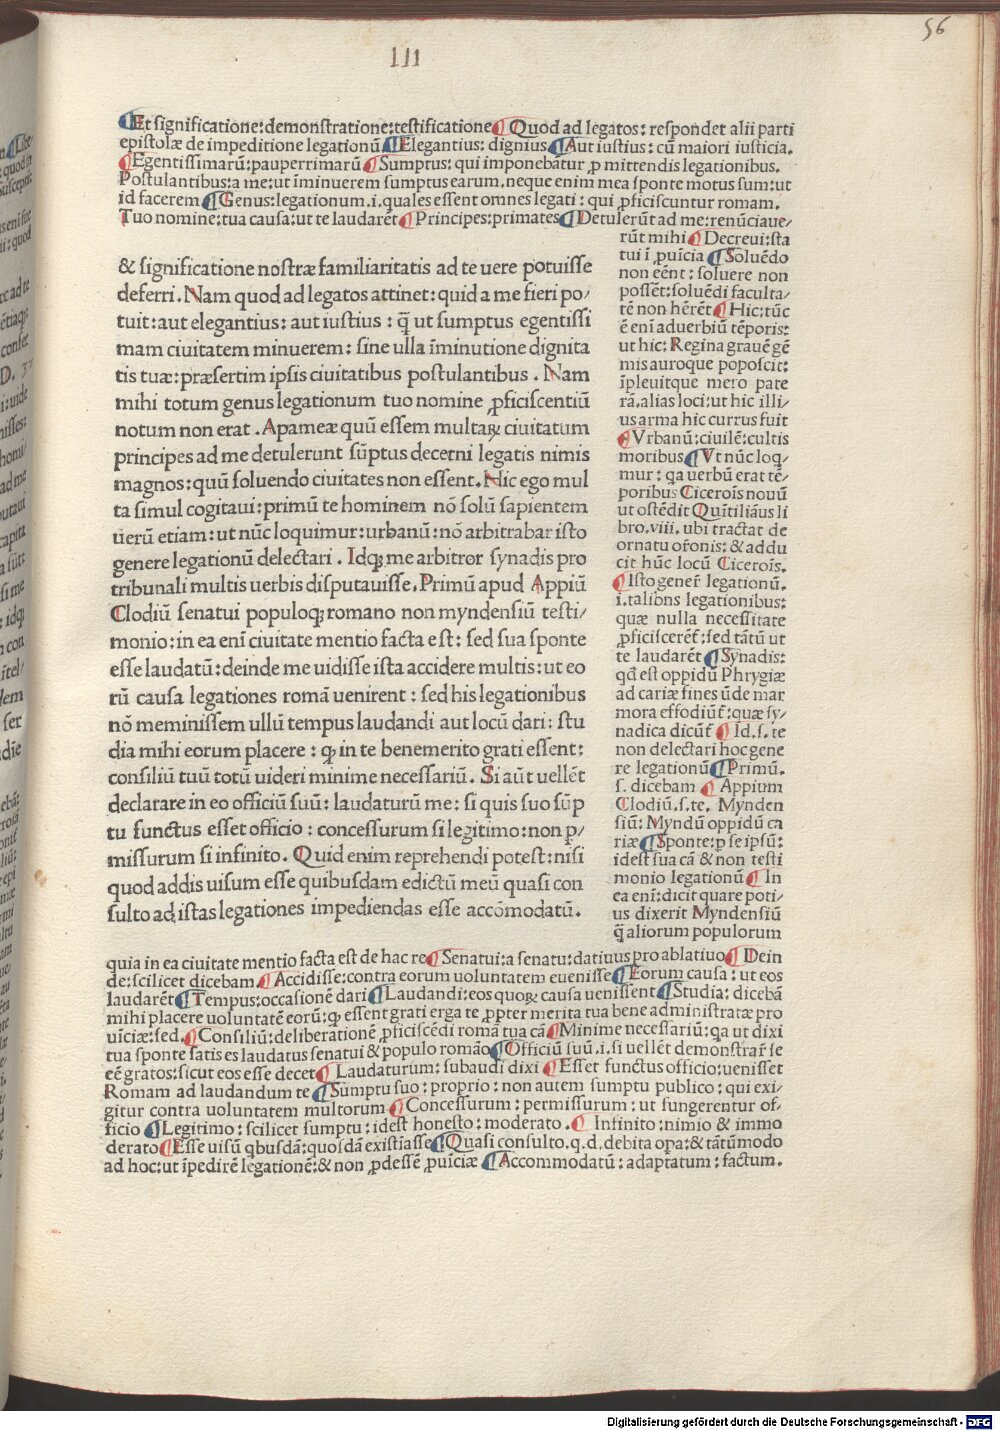 56
III
¶ Et significatione: demonstratione: testificatione ¶ Quod ad legatos: respondet alii parti
epistolæ de impeditione legationū ¶ Elegantius: dignius ¶ Aut iustius: cū maiori iusticia.
¶ Egentissimarū: pauperrimarū ¶ Sumptus: qui imponebātur ꝓ mittendis legationibus.
Postulantibus: a me: ut īminuerem sumptus earum. neque enim mea sponte motus sum: ut
id facerem ¶ Genus: legationum .i. quales essent omnes legati: qui ꝓficiscuntur romam.
Tuo nomine: tua causa: ut te laudarēt ¶ Principes: primates ¶ Detulerūt ad me: renūciaue/
& significatione nostræ familiaritatis ad te uere potuisse
deferri. Nam quod ad legatos attinet: quid a me fieri po/
tuit: aut elegantius: aut iustius: q̄ ut sumptus egentissi
mam ciuitatem minuerem: sine ulla īminutione dignita
tis tuæ: præsertim ipsis ciuitatibus postulantibus. Nam
mihi totum genus legationum tuo nomine ꝓficiscentiū
notum non erat. Apameæ quū essem multaꝝ ciuitatum
principes ad me detulerunt sūptus decerni legatis nimis
magnos: quū soluendo ciuitates non essent. Hic ego mul
ta simul cogitaui: primū te hominem nō solū sapientem
uerū etiam: ut nūc loquimur: urbanū: nō arbitrabar isto
genere legationū delectari. Idqꝫ me arbitror synadis pro
tribunali multis uerbis disputauisse. Primū apud Appiū
Clodiū senatui populoqꝫ romano non myndensiū testi/
monio: in ea enī ciuitate mentio facta est: sed sua sponte
esse laudatū: deinde me uidisse ista accidere multis: ut eo
rū causa legationes romā uenirent: sed his legationibus
nō meminissem ullū tempus laudandi aut locū dari: stu
dia mihi eorum placere: ꝙ in te benemerito grati essent:
consiliū tuū totū uideri minime necessariū. Si aūt uellēt
declarare in eo officiū suū: laudaturū me: si quis suo sūp
tu functus esset officio: concessurum si legitimo: non ꝑ/
missurum si infinito. Quid enim reprehendi potest: nisi
quod addis uisum esse quibusdam edictū meū quasi con
sulto ad istas legationes impediendas esse accōmodatū.
rūt mihi ¶ Decreui: sta
tui ī ꝓuīcia ¶ Soluēdo
non eēnt: soluere non
possēt: soluēdi faculta/
tē non hērēt ¶ Hic: tūc
ē enī aduerbiū tēporis:
ut hic: Regina grauē gē
mis auroque poposcit:
īpleuitque mero pate
rā. alias loci: ut hic illi/
us arma hic currus fuit
¶ Vrbanū: ciuilē: cultis
moribus ¶ Vt nūc loq/
mur: qa uerbū erat tē/
poribus Ciceroīs nouū
ut ostēdit Quītiliāus li
bro. viii. ubi tractat de
ornatu orōnis: & addu
cit hūc locū Ciceroīs.
¶ Isto generī legationū.
i. talibus legationibus:
quæ nulla necessitate
ꝓficiscerēt: sed tātū ut
te laudarēt ¶ Synadis:
qđ est oppidū Phrygiæ
ad cariæ fines ūde mar
mora effodiūt: quæ sy/
nadica dicūt ¶ Id. s. te
non delectari hoc gene
re legationū ¶ Primū.
s. dicebam ¶ Appium
Clodiū. s. te. Mynden
siū: Myndū oppidū ca
riæ ¶ Sponte: ꝑ se ipsū:
idest sua cā & non testi
monio legationū ¶ In
ea enī: dicit quare poti/
us dixerit Myndensiū
q̄ aliorum populorum
quia in ea ciuitate mentio facta est de hac re ¶ Senatui: a senatu: datiuus pro ablatiuo ¶ Dein
de: scilicet dicebam ¶ Accidisse: contra eorum uoluntatem euenisse ¶ Eorum causa: ut eos
laudarēt ¶ Tempus: occasionē dari ¶ Laudandi: eos quoꝝ causa uenissent ¶ Studia: dicebā
mihi placere uoluntatē eorū: ꝙ essent grati erga te ꝓpter merita tua bene administratæ pro
uīciæ: sed. ¶ Consiliū: deliberationē ꝓficiscēdi romā tua cā ¶ Minime necessariū: qa ut dixi
tua sponte satis es laudatus senatui & populo romāo ¶ Officiū suū .i. si uellēt demonstrar̄ se
eē gratos: sicut eos esse decet ¶ Laudaturum: subaudi dixi ¶ Esset functus officio: uenisset
Romam ad laudandum te ¶ Sumptu suo: proprio: non autem sumptu publico: qui exi/
gitur contra uoluntatem multorum ¶ Concessurum: permissurum: ut fungerentur of/
ficio ¶ Legitimo: scilicet sumptu: idest honesto: moderato. ¶ Infinito: nimio & immo
derato ¶ Esse uisū qbusdā: quosdā existīasse ¶ Quasi consulto. q. d. debita opa: & tātūmodo
ad hoc: ut īpedirē legationē: & non ꝓdessē ꝓuīciæ ¶ Accommodatū: adaptatum: factum.
Digitalisierung gefördert durch die Deutsche Forschungsgemeinschaft - DFG